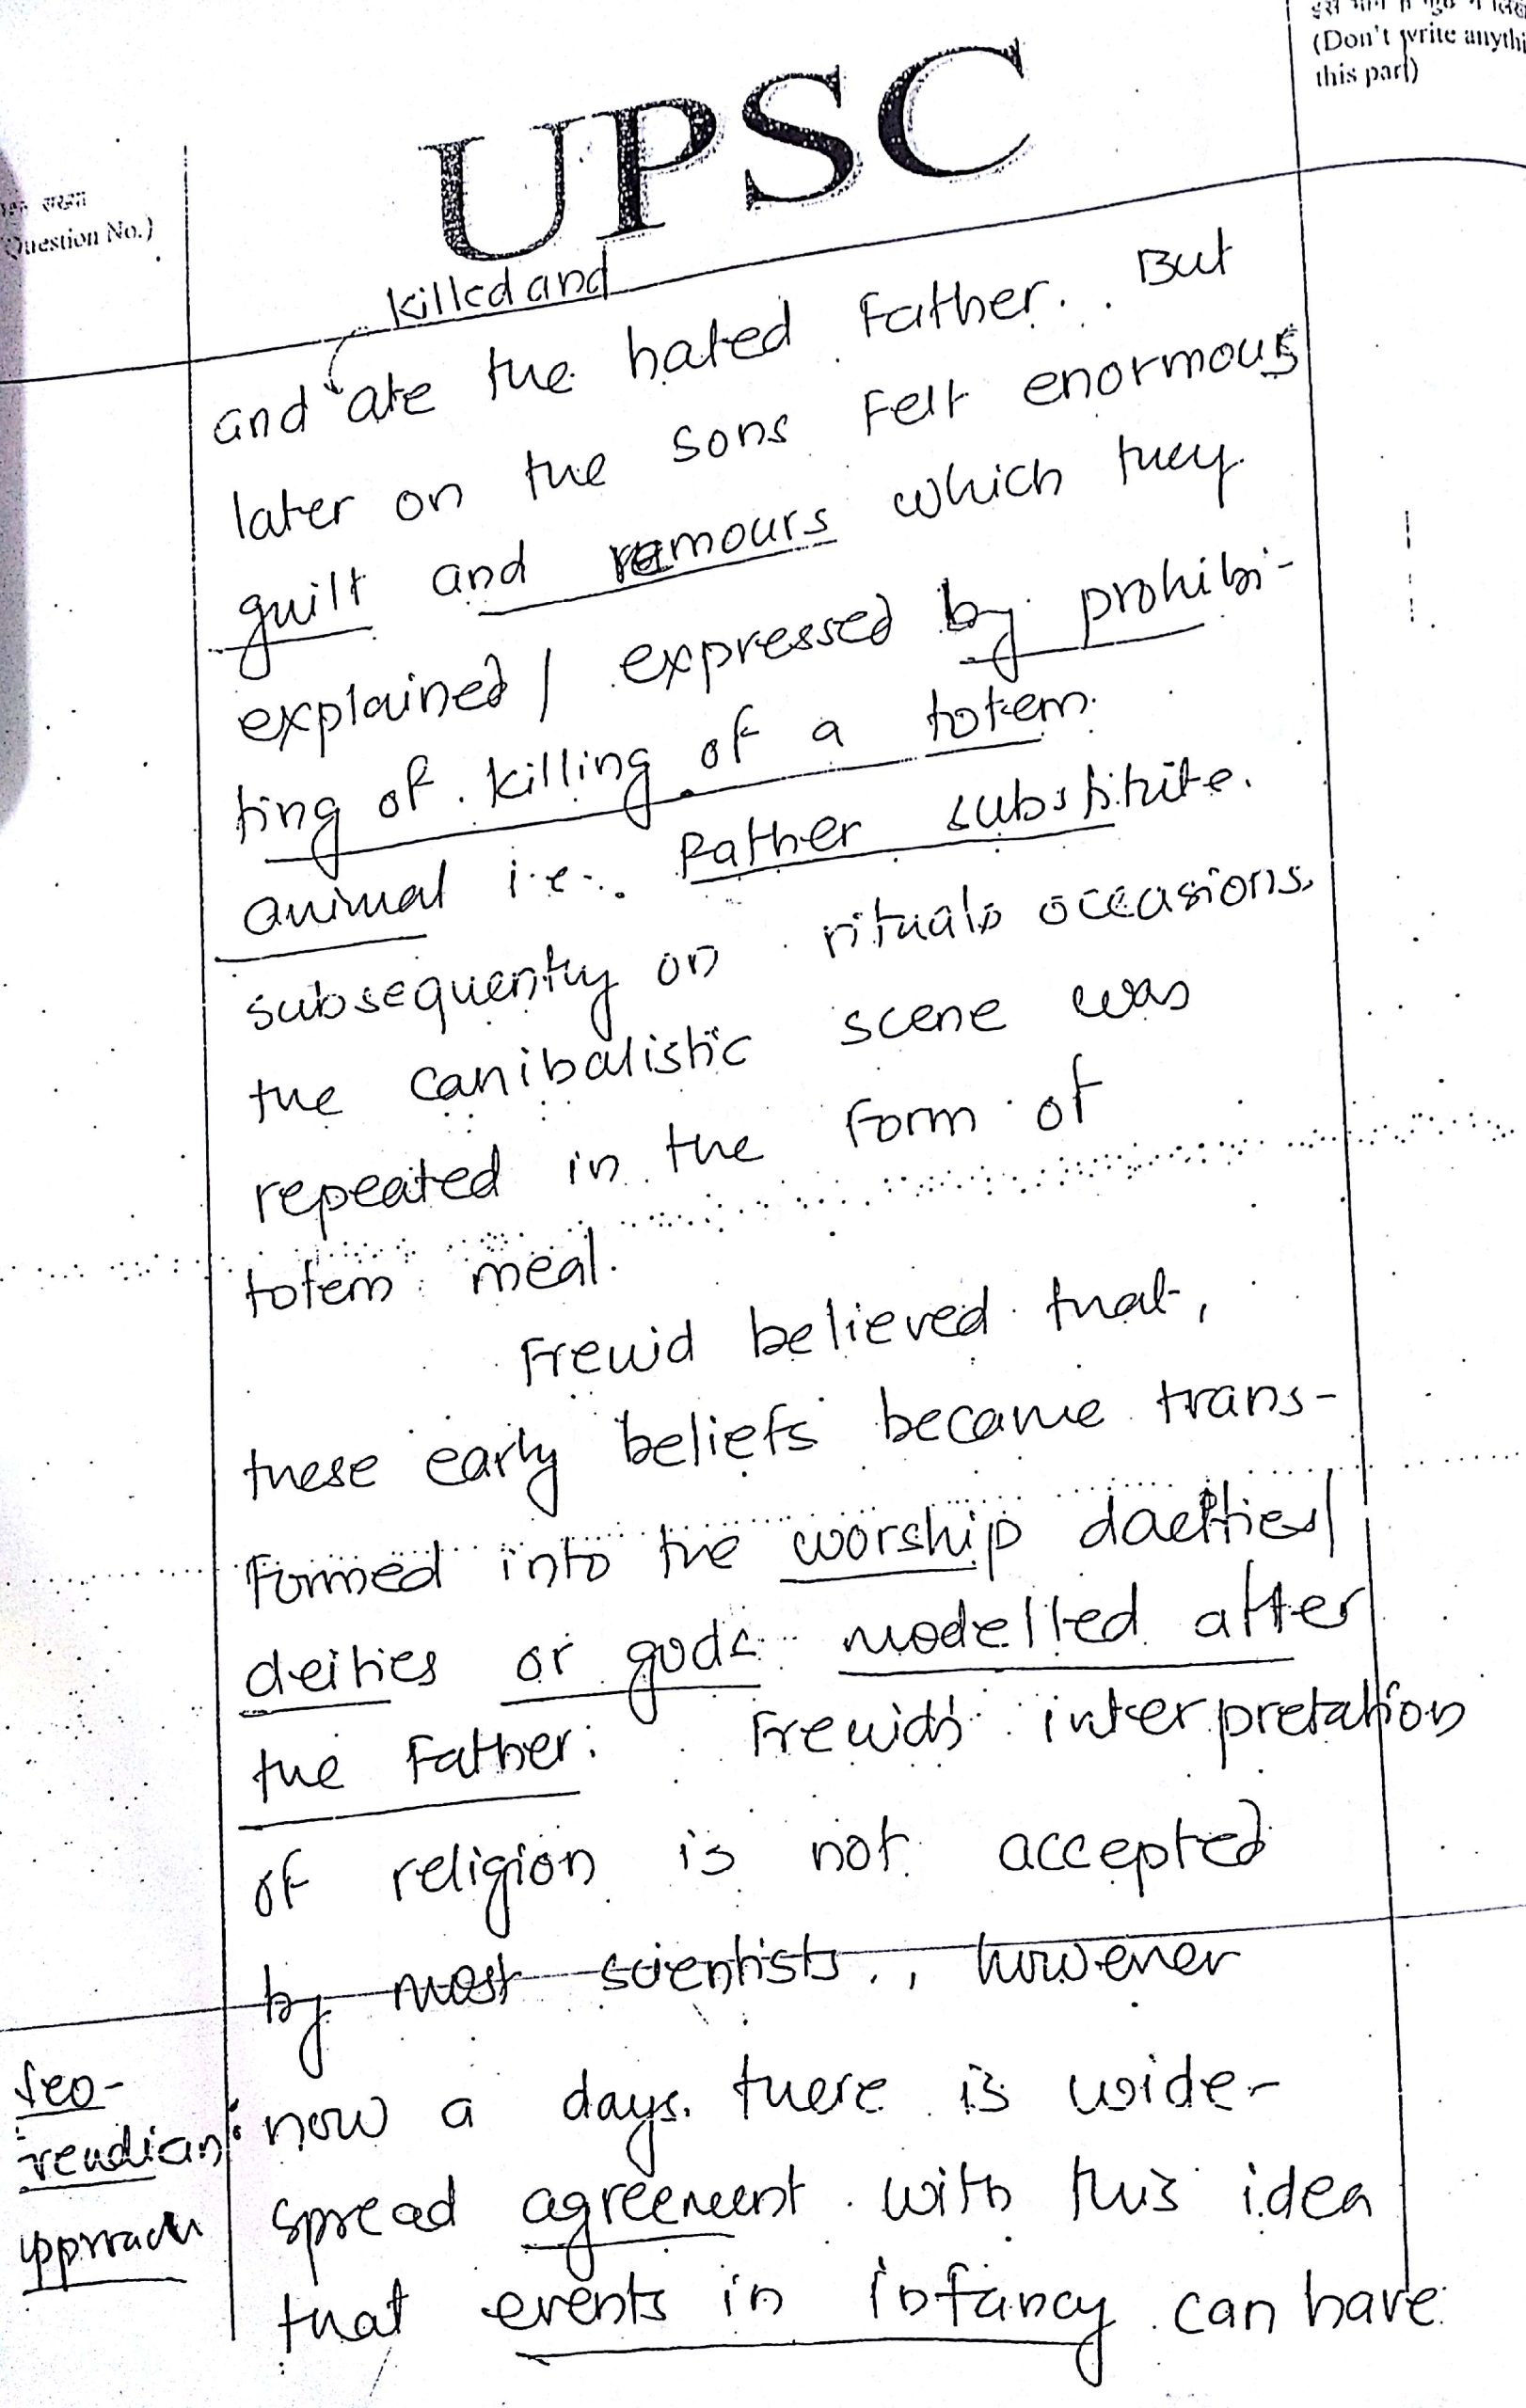 (Don't write anythi
this part)
UPSC
Question No.)
killed and
and ate the hated Father. But
later on the sons Felt enormous
guilt and remours which they
explained / expressed by prohibi-
ting of killing of a totem
animal i.e. Father substitute.
subsequently on rituals occasions.
the canibalistic scene was
repeated in the form of
totem meal.
Freuid believed that,
these early beliefs became trans-
formed into the worship daeities/
deities or gods modelled after
the Father. Freuid's interpretation
of religion is not accepted
by most scientists., however
now a days. there is wide-
spread agreement with this idea
that events in infancy can have